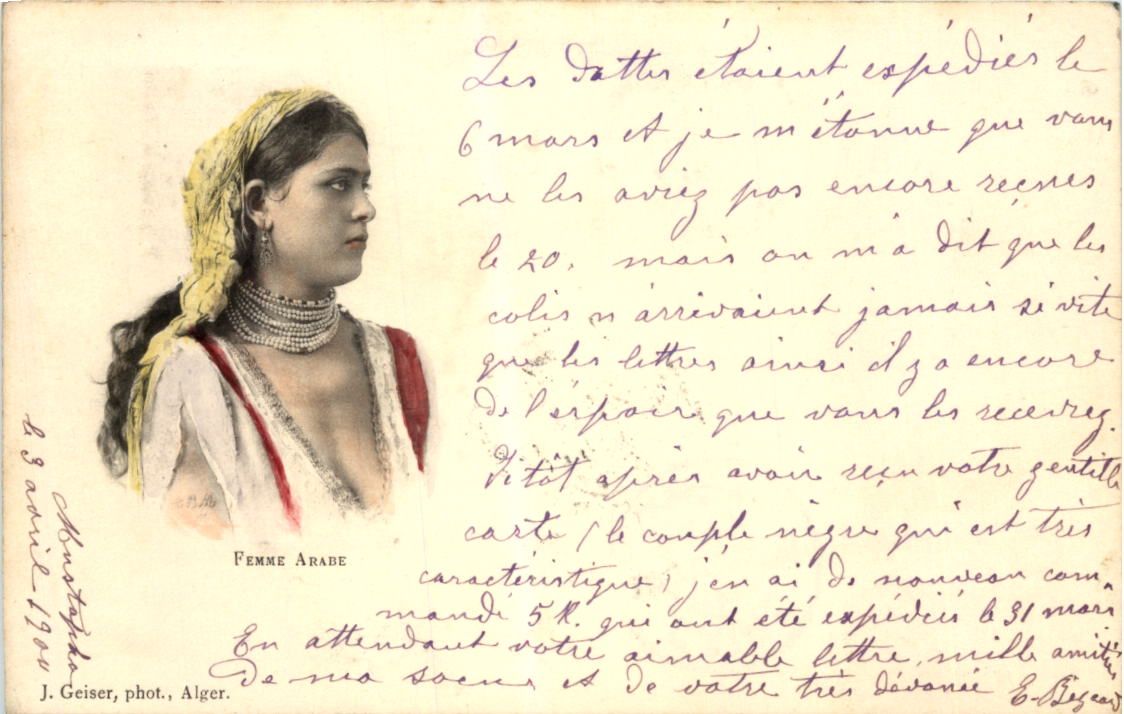 Les dattes étaient expédiés le
6 mars et je m'étonne que vous
ne les aviez pas encore reçues
le 20, mais on m'a dit que les
colis n'arrivaient jamais si vite
que les lettres ainsi il y a encore
de l'espoir que vous les recevrez.
Sitôt après avoir reçu votre gentille
carte (le couple nègre qui est très
caractéristique) j'en ai de nouveau com-
mandé 5 K. qui ont été expédiés le 31 mars.
En attendant votre aimable lettre, mille amitiés
de ma soeur et de votre très dévouée E.
Mustapha
le 3 avril 1901
FEMME ARABE
J. Geiser, phot., Alger.